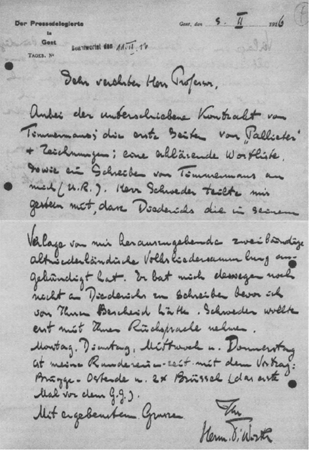 Der Pressedelegierte
in
Gent
Gent, den 8. II 1916
TAGEB. N.
Beantwortet den
Sehr verehrter Herr Professor,
Anbei der unterschriebene Kontrakt von
Timmermans; die erste Seiten von „Pallieter"
+ Zeichnungen; eine erklärende Wortliste.
Sowie ein Schreiben von Timmermans an
mich (u.R.). Herr Schweder teilte mir
gestern mit, dass Diederichs die in seinem
Verlage von mir herauszugebende zweibändige
altniederländische Volksliedersammlung an-
gekündigt hat. Er bat mich deswegen noch
nicht an Diederichs zu schreiben bevor ich
von Ihnen Bescheid hätte. Schweder wollte
erst mit Ihnen Rücksprache nehmen.
Montag, Dienstag, Mittwoch u. Donnerstag
ist meine Rundreise-zeit mit dem Vortrag:
Brügge-Ostende u. 2x Brüssel (das erste
Mal vor dem G.G.).
Mit ergebenstem Grusse
Ihr
Herm. F. Wirth